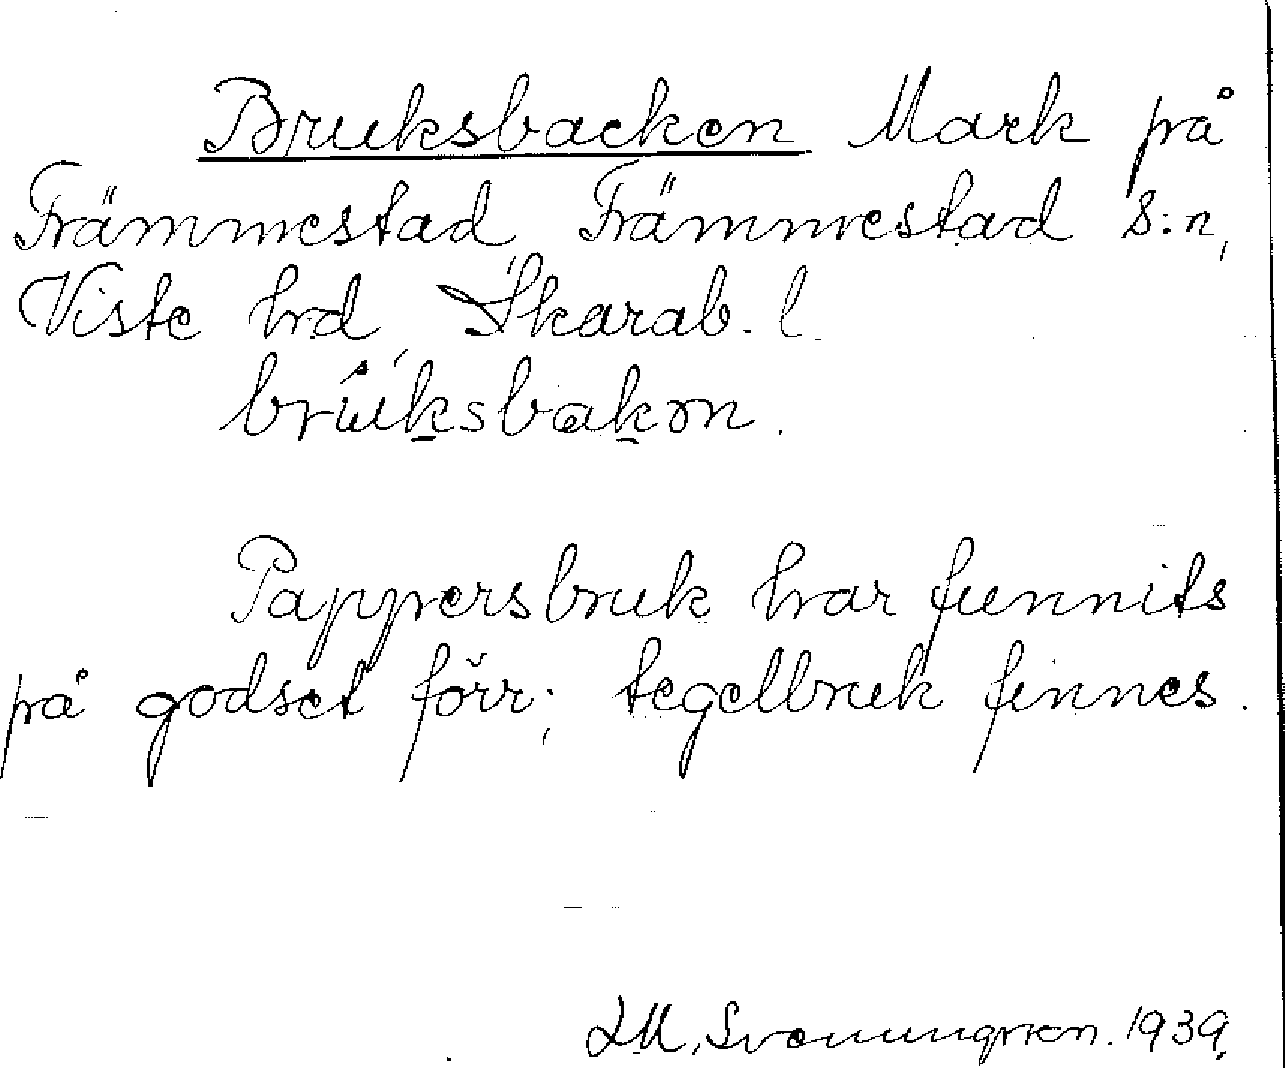 Bruksbacken Mark på
Främmestad, Främmestad s:n,
Viste hrd, Skarab. l.
brúksbakon.
Pappersbruk har funnits
på godset förr; tegelbruk finnes.
1939.